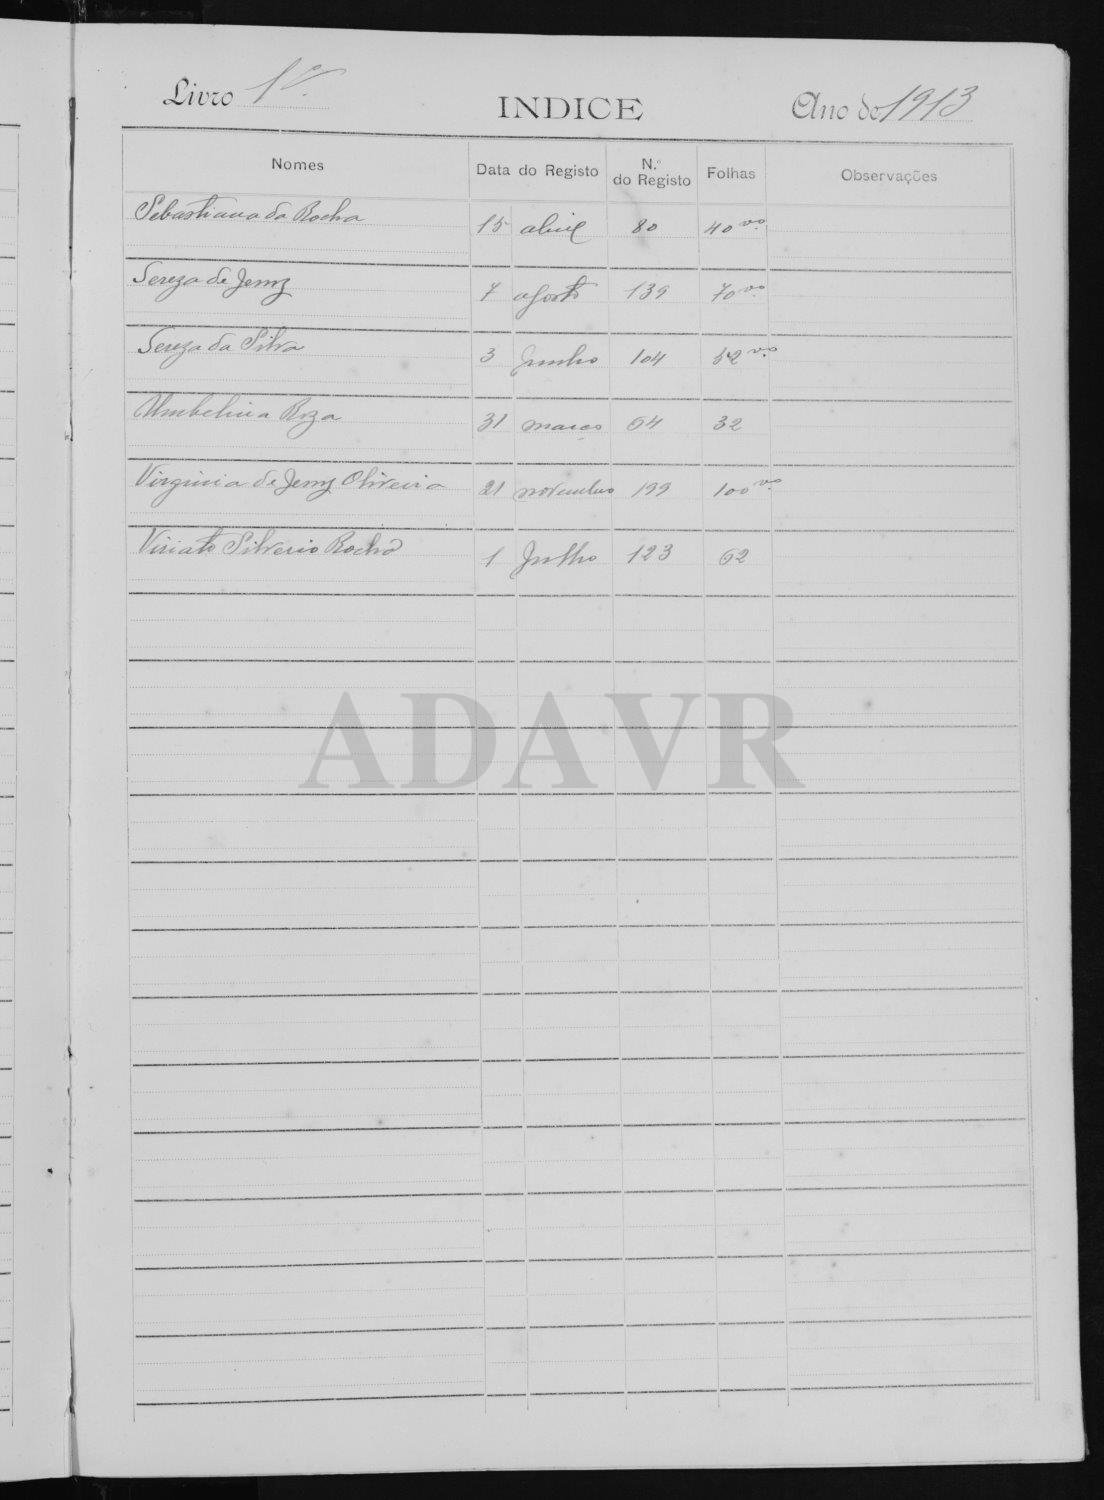 Livro 1º
INDICE
Ano de 1913
Nomes Data do Registo N.º do Registo Folhas Observações
Sebastiana da Rocha 15 abril 80 40 vº
Tereza de Jesus 7 agosto 139 70 vº
Tereza da Silva 3 Junho 104 52 vº
Umbelina Roza 31 março 64 32
Virginia de Jesus Oliveira 21 novembro 199 100 vº
Viriato Silverio Rocha 1 Julho 123 62
ADAVR